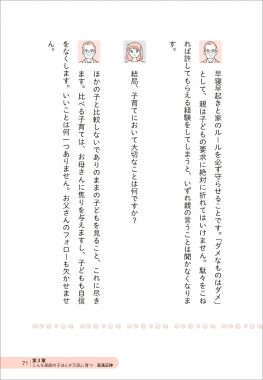 早寝早起きと家のルールを必ず守らせることです。「ダメなものはダメ」
として、親は子どもの要求に絶対に折れてはいけません。駄々をこね
れば許してもらえる経験をしてしまうと、いずれ親の言うことは聞かなくなりま
す。
結局、子育てにおいて大切なことは何ですか？
ほかの子と比較しないでありのままの子どもを見ること、これに尽き
ます。比べる子育ては、お母さんに焦りを与えますし、子どもも自信
をなくします。いいことは何一つありません。お父さんのフォローも欠かせませ
ん。
71
第3章
こんな家庭の子は心が元気に育つ 高濱正伸